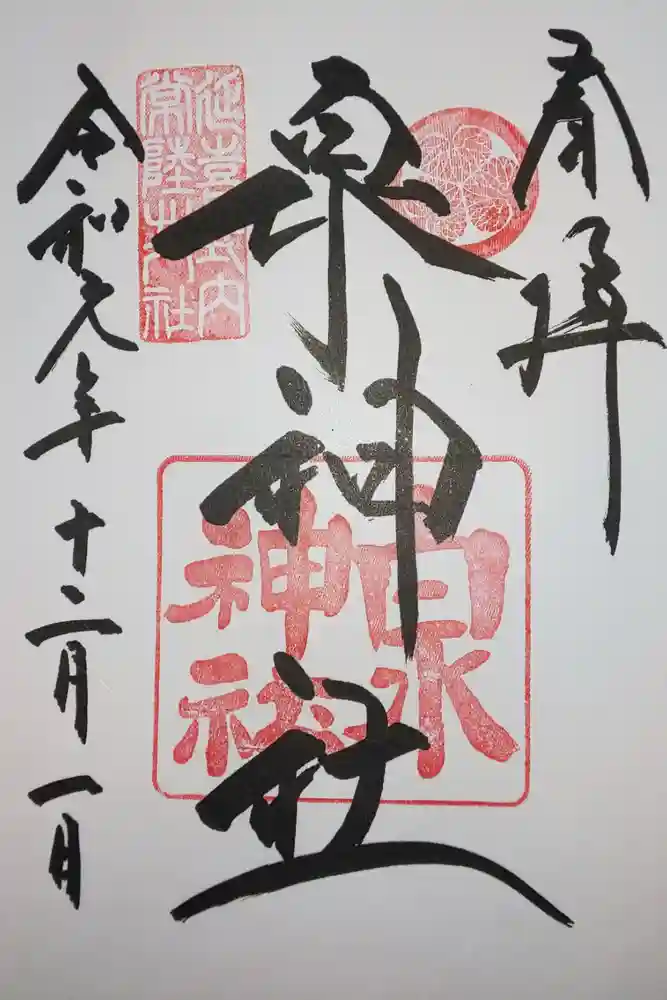 奉拝
泉神社
令和元年十二月一日
延喜式内
常陸
社
泉
神社